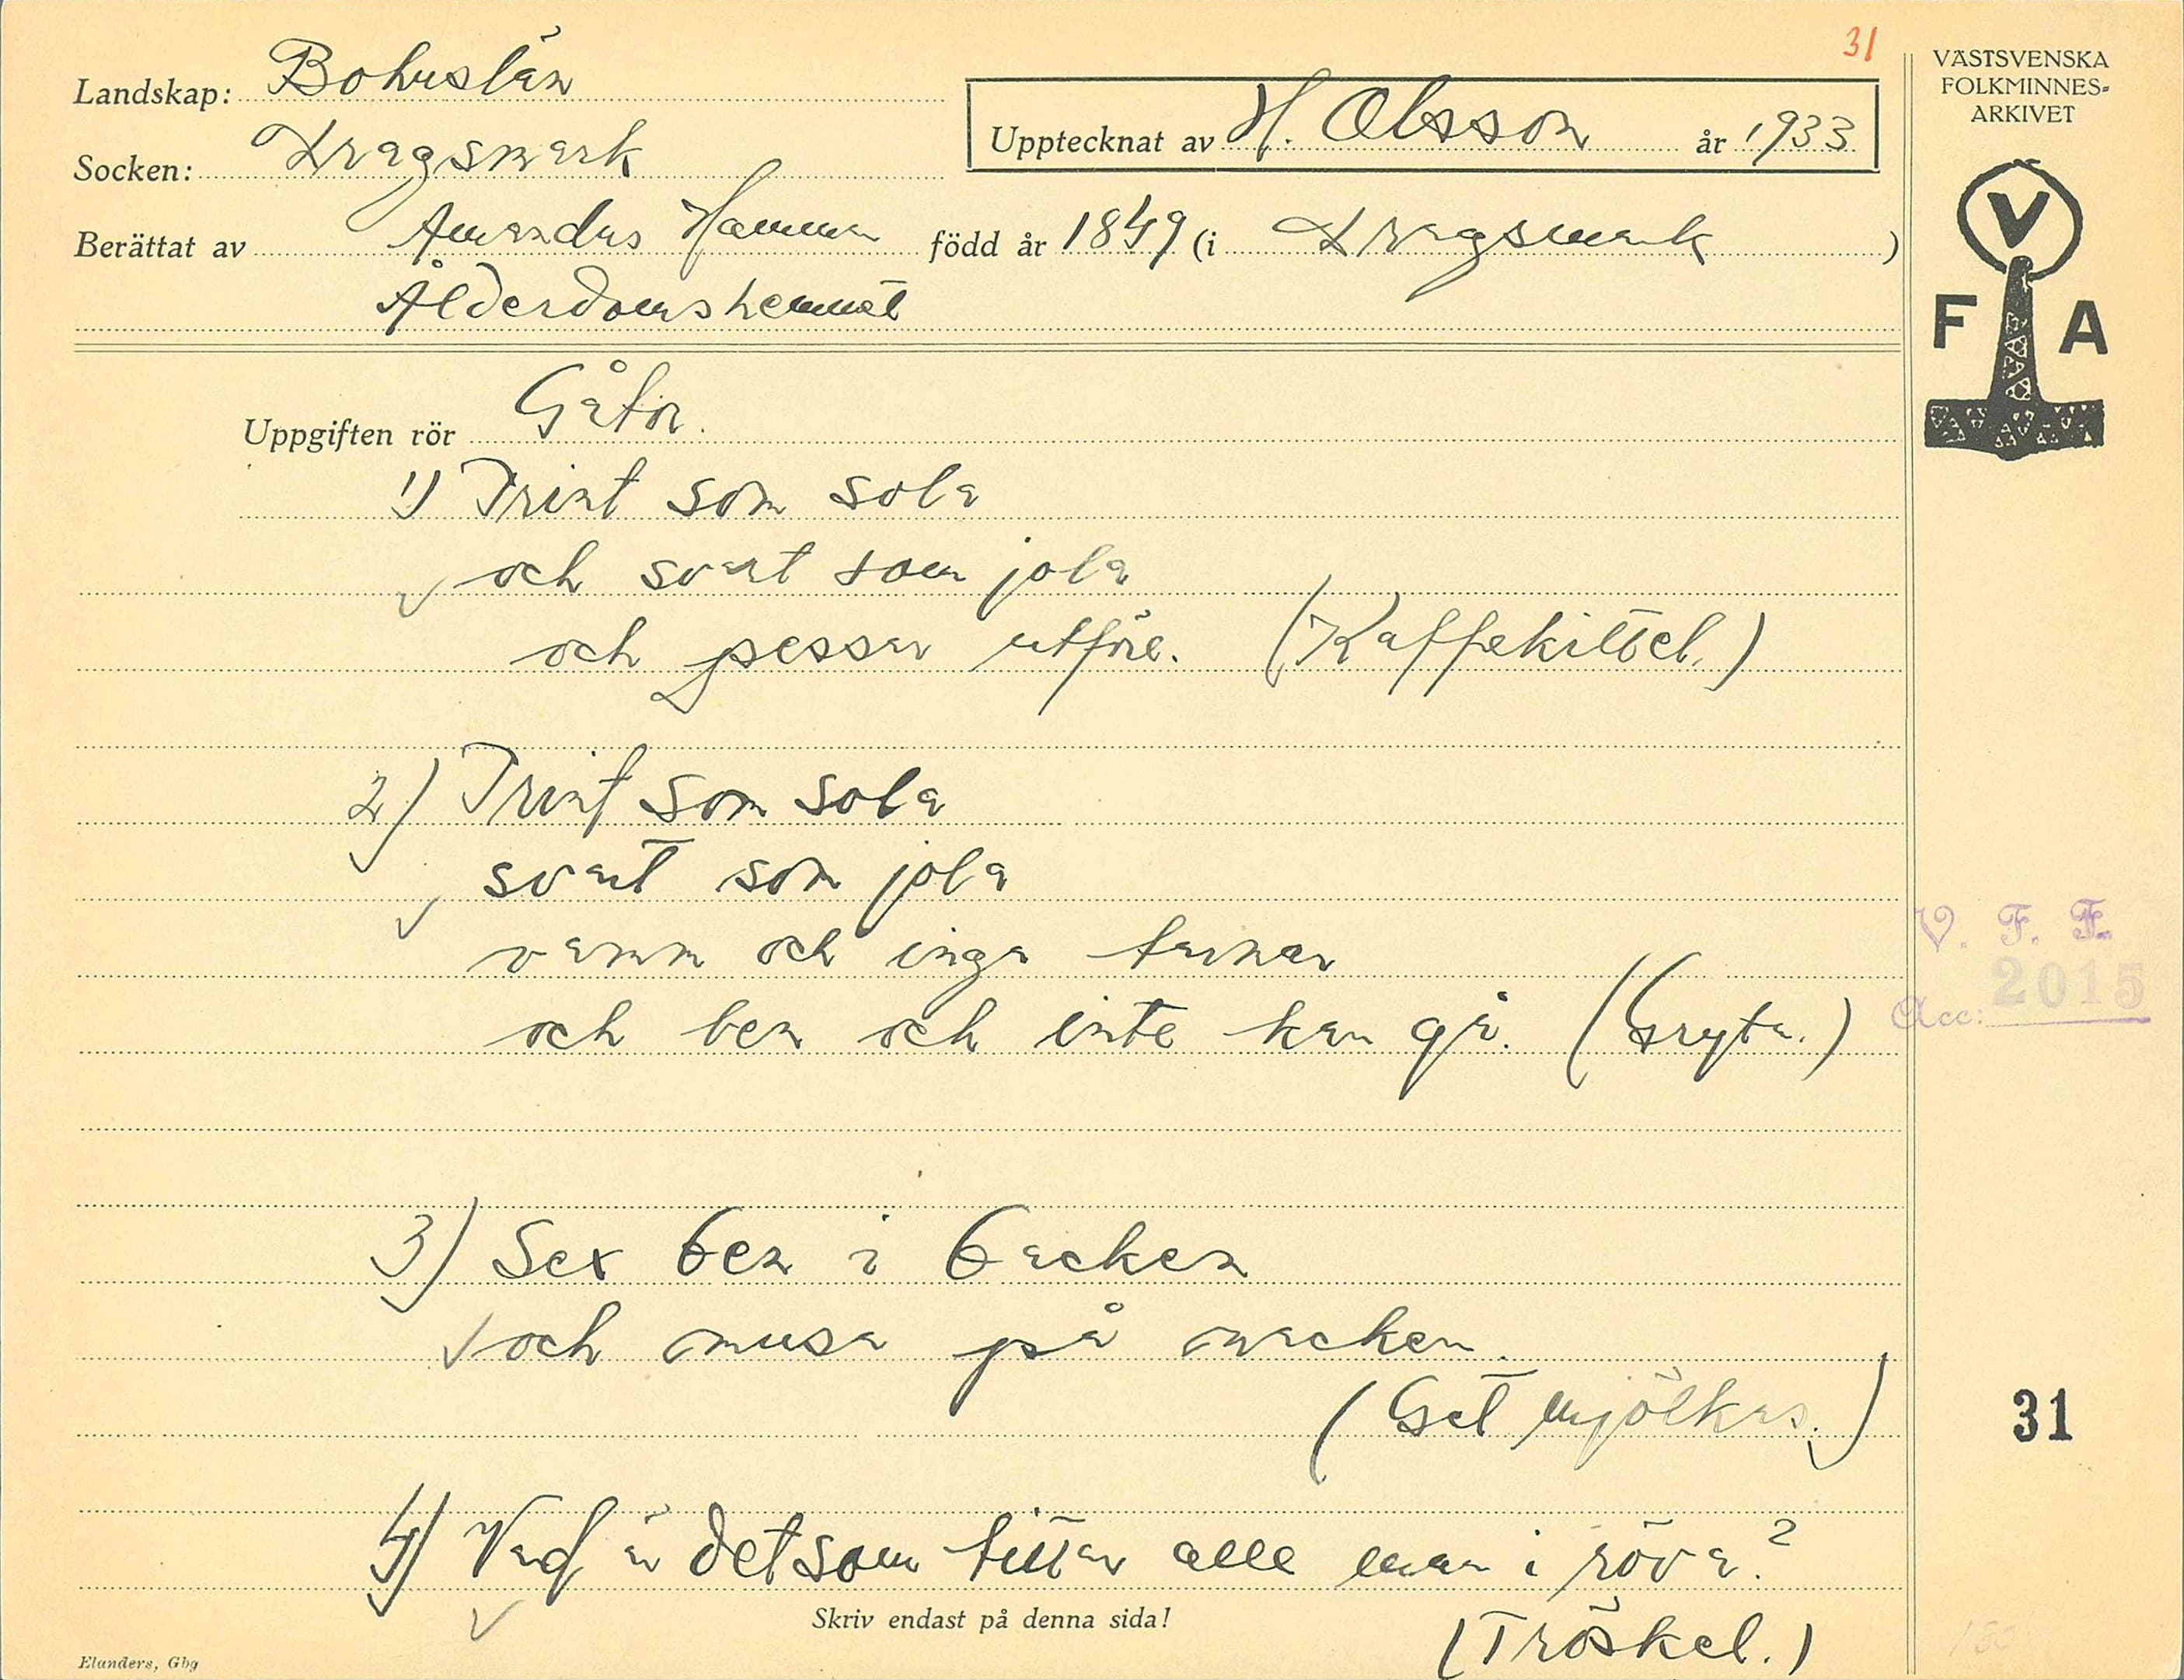 31
Landskap: Bohuslän
Upptecknat av H. Olsson år 1933
Socken: Dragsmark
Berättat av Amandus Hamma född år 1849 (i Dragsmark)
Ålderdomshemmet
VÄSTSVENSKA
FOLKMINNES-
ARKIVET
V
F A
Uppgiften rör Gåtor.
1) Trint som sola
och svart som jola
och pessar utför. (Kaffekittel.)
2) Trint som sola
svart som jola
vamm och inga tarmar
och ben och inte kan gå. (Gryta.)
V. F. F.
Acc: 2015
3) Sex ben i backen
och musa på nacken.
(Get mjölkas.)
31
4) Vad är det som tittar alle man i röva?
(Tröskel.)
Skriv endast på denna sida!
Elanders, Gbg